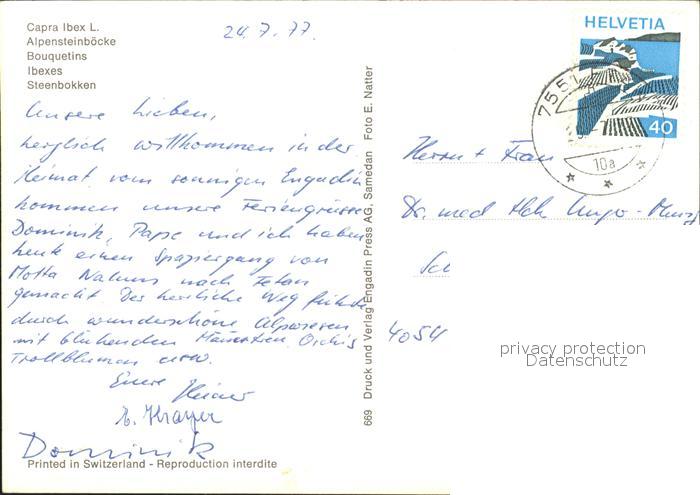 Capra Ibex L.
Alpensteinböcke
Bouquetins
Ibexes
Steenbokken
24.7.77.
Unsere Lieben,
herzlich willkommen in der
Heimat vom sonnigen Engadin
kommen unsere Feriengrüsse
Dominik, Papa und ich haben
heute einen Spaziergang von
Motta Naluns nach Fetan
gemacht. Der herrliche Weg führte
durch wunderschöne Alpwiesen
mit blühenden Männertreu, Orchis
Trollblumen usw.
Eure Heiner
E. Krayer
Dominik
Printed in Switzerland - Reproduction interdite
669 Druck und Verlag Engadin Press AG, Samedan Foto E. Natter
HELVETIA
40
7551
10a
Herrn + Frau
Dr. med
4054
privacy protection
Datenschutz